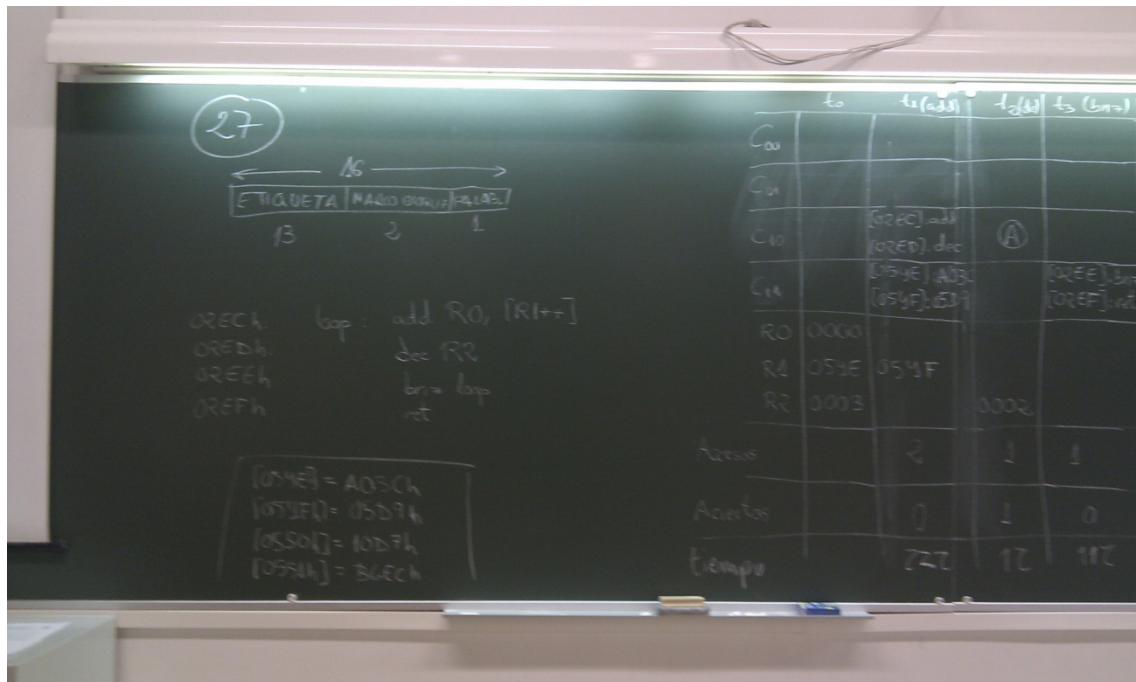 27
16
ETIQUETA MARCO BLOQUE PALAB.
13 2 1
02ECh loop: add R0, [R1++]
02EDh dec R2
02EEh bnz loop
02EFh ret
[054Eh] = A03Ch
[054Fh] = 05D9h
[0550h] = 10D7h
[0551h] =
t0 t1(add) t3 (bnz)
C00
C01
C10 [02EC]:add A
[02ED]:dec
C11 [054E]:A03C [02EE]:bnz
[054F]:05D9 [02EF]:ret
R0 0000
R1 054E 054F
R2 0003 0002
Accesos 2 1 1
Aciertos 0 1 0
tiempo 22τ 1τ 11τ